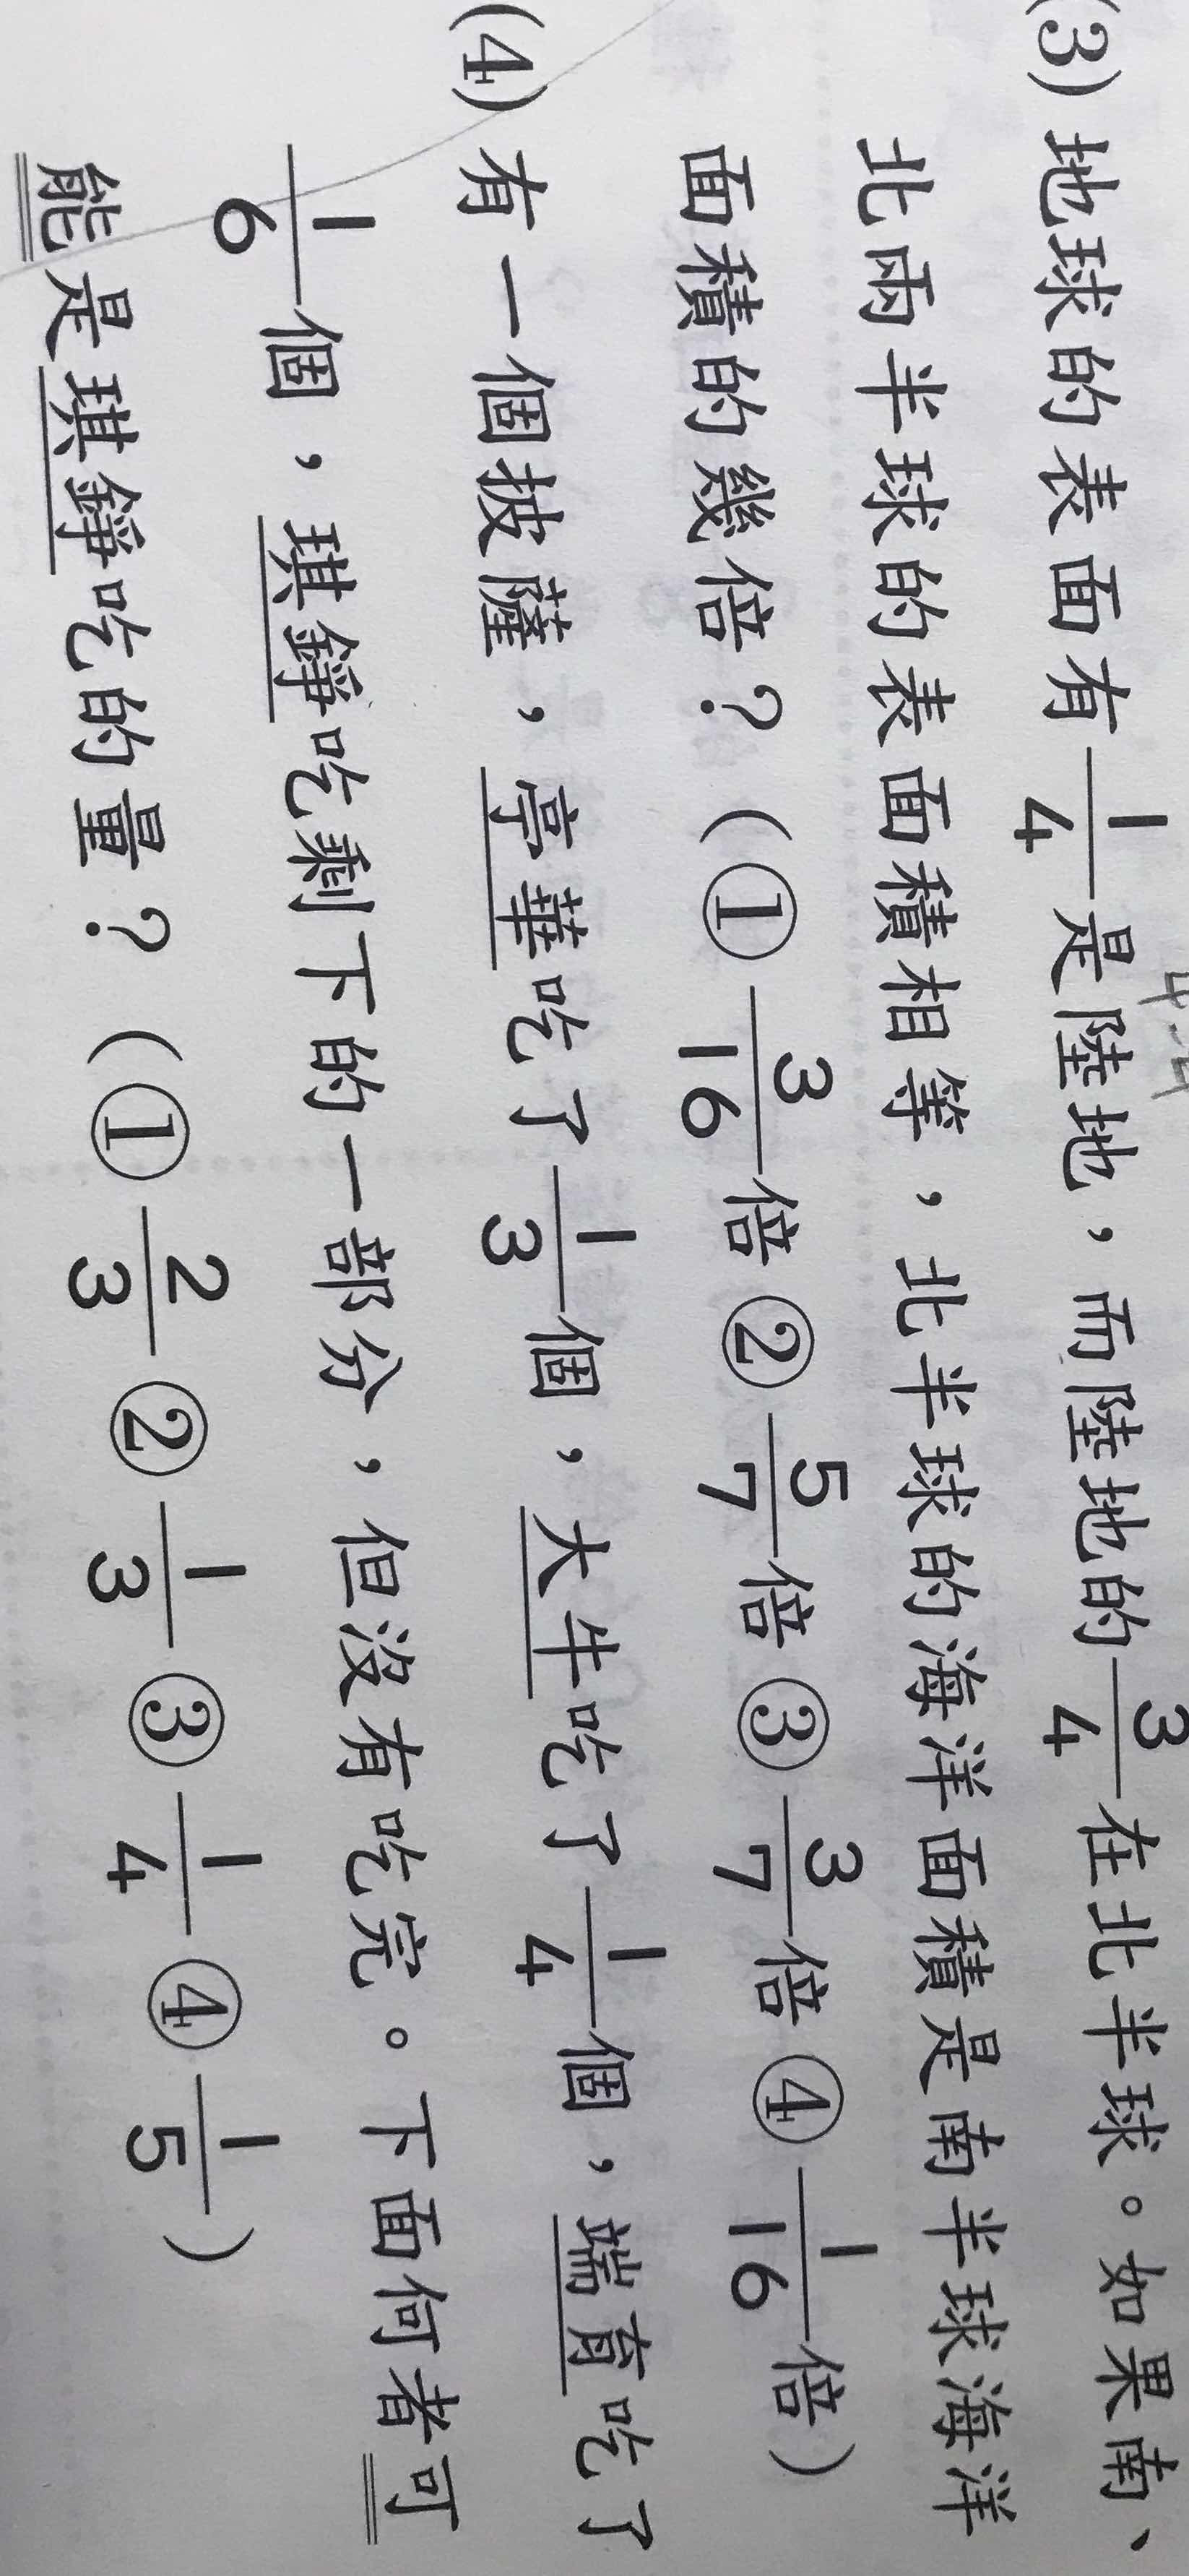 (3) 地球的表面有1/4是陸地，而陸地的3/4在北半球。如果南、
北兩半球的表面積相等，北半球的海洋面積是南半球海洋
面積的幾倍？（① 3/16倍 ② 5/7倍 ③ 3/7倍 ④ 1/16倍）
(4) 有一個披薩，亭華吃了1/3個，大牛吃了1/4個，端育吃了
1/6個，琪錚吃剩下的一部分，但沒有吃完。下面何者可
能是琪錚吃的量？（① 2/3 ② 1/3 ③ 1/4 ④ 1/5）